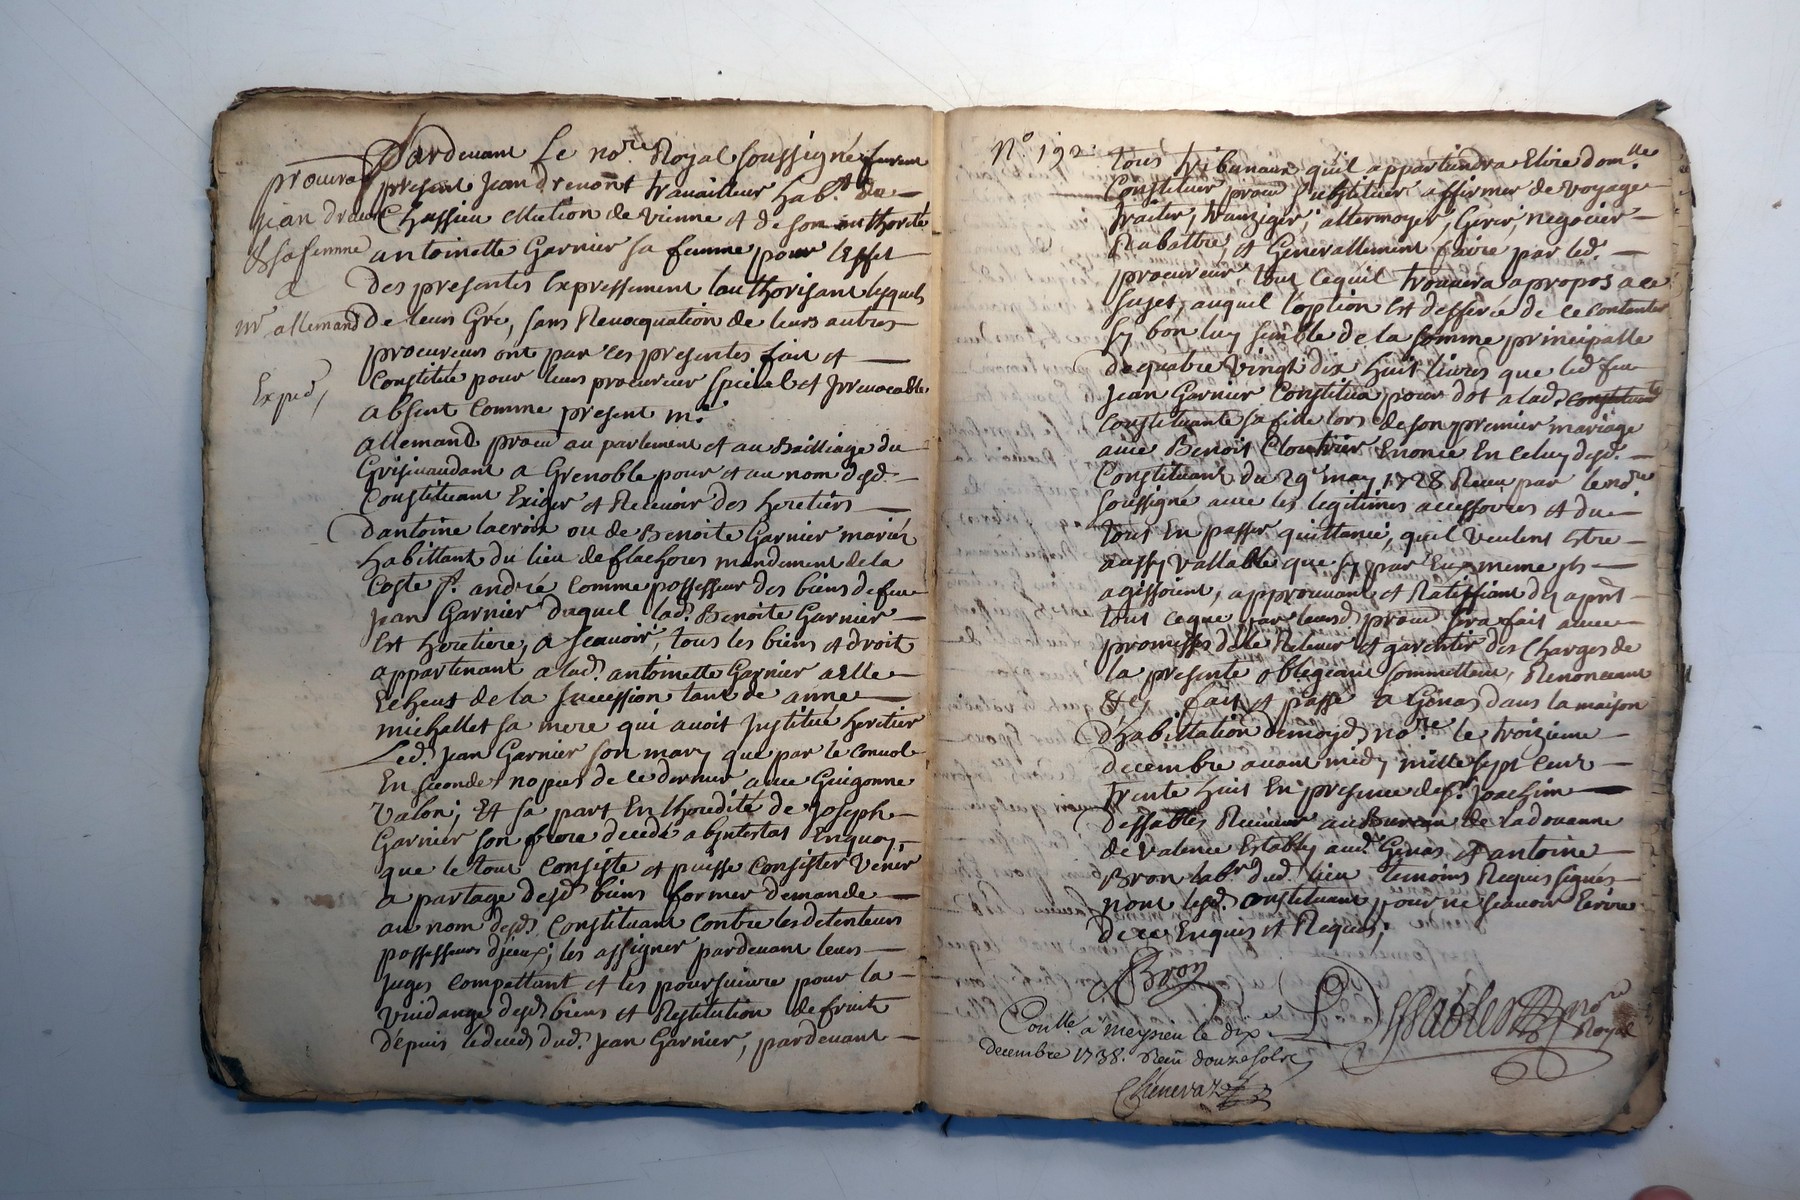 procura^on
jean dreuont
& sa femme
a
mr allemand
Exped,
Pardeuant Le no.re Royal soussigné furent
present Jean dreuont trauailleur hab.t de
Chassieu election de vienne et de son authorité
antoinette Garnier sa femme pour l'effet
des presentes Expressement lauthorisant lesquels
de leurs Gré, sans Reuocquation de leurs autres
procureurs ont par ces presentes fait et
Constitué pour leurs procureur special et Jrreuocable
absent comme present m.e
allemand procu.r au parlement et au Bailliage du
Grisiuaudant a Grenoble pour et au nom desd.
Constituant Exiger et Receuoir des heretiers
dantoine lacroix ou de Benoite Garnier mariés
habittant du lieu de flachores mandement de la
Coste S.t andré comme possesseur des biens de feu
jean Garnier duquel lad. Benoite Garnier
Est heretiere, a scauoir, tous les biens et droit
appartenant a lad. antoinette Garnier a elle
Echeus de la succession tant de anne
michallet sa mere qui auoit Jnstitué heretier
Led. Jean Garnier son mary que par le conuol
En secondes nopces de ce dernier auec Guigonne
Valon; Et sa part En lhoredité de Joseph
Garnier son frere decedé abjntestat Enquoy
que le tout consiste et puisse consister venir
a partage desd. biens former demande
au nom desd. constituant contre les detenteurs
possesseurs djceux; les assigner pardeuant leurs
Juges compettant et les poursuiure pour la
vuidange desd. biens et Restitution de fruits
dépuis le deceds dud. Jean Garnier, pardeuant
N.o 192.
tous tribunaux quil appartiendra Elire dom.lle
Constituer procu.r substituer affirmer de voyage
traiter, tranziger, attermoyer, Gerer, negocier
Rabattre, et Generallement faire par led.
procureur, tout ce quil trouuera apropos a ce
sujet, auquel l'option Est defferée de ce contanter
sy bon luy semble de la somme principalle
de quatre vingt dix huit liures que led. feu
Jean Garnier Constitua pour dot a lad. constituante
constituante sa fille lors de son premier mariage
auec Benoit Cloutrier Enoncé En celuy desd.
Constituant du 29.e may 1728 Receu par le no.re
soussigné auec les legitimes accessoires et du
tout En passer quittance, quil veulent Estre
aussy vallable que sy par Eux meme jls
agissoint, approuuant et Ratiffiant des apresent
tout ce que par leurd. procu.r sera fait auec
promesses de le Releuer et garentir des charges de
la presente obligeant soumettant, Renonceant
&c, fait et passé a Genas dans la maison
d'habittation de moyd. no.re le troizieme
decembre auant midy mille sept cent
trente huit En presence de s.r Joachim
dessables Receueur au Bureau de la douanne
de valence Establÿ aud. Genas et antoine
Bron lab.r dud. lieu temoins Requis signés
non lesd. constituant pour ne scauoir Ecrire
de ce Enquis et Requis;
Bron
Dessables no.re Royal
Con.lle a meysieu le dix.e
decembre 1738. Receu douze sols
Chenevaz